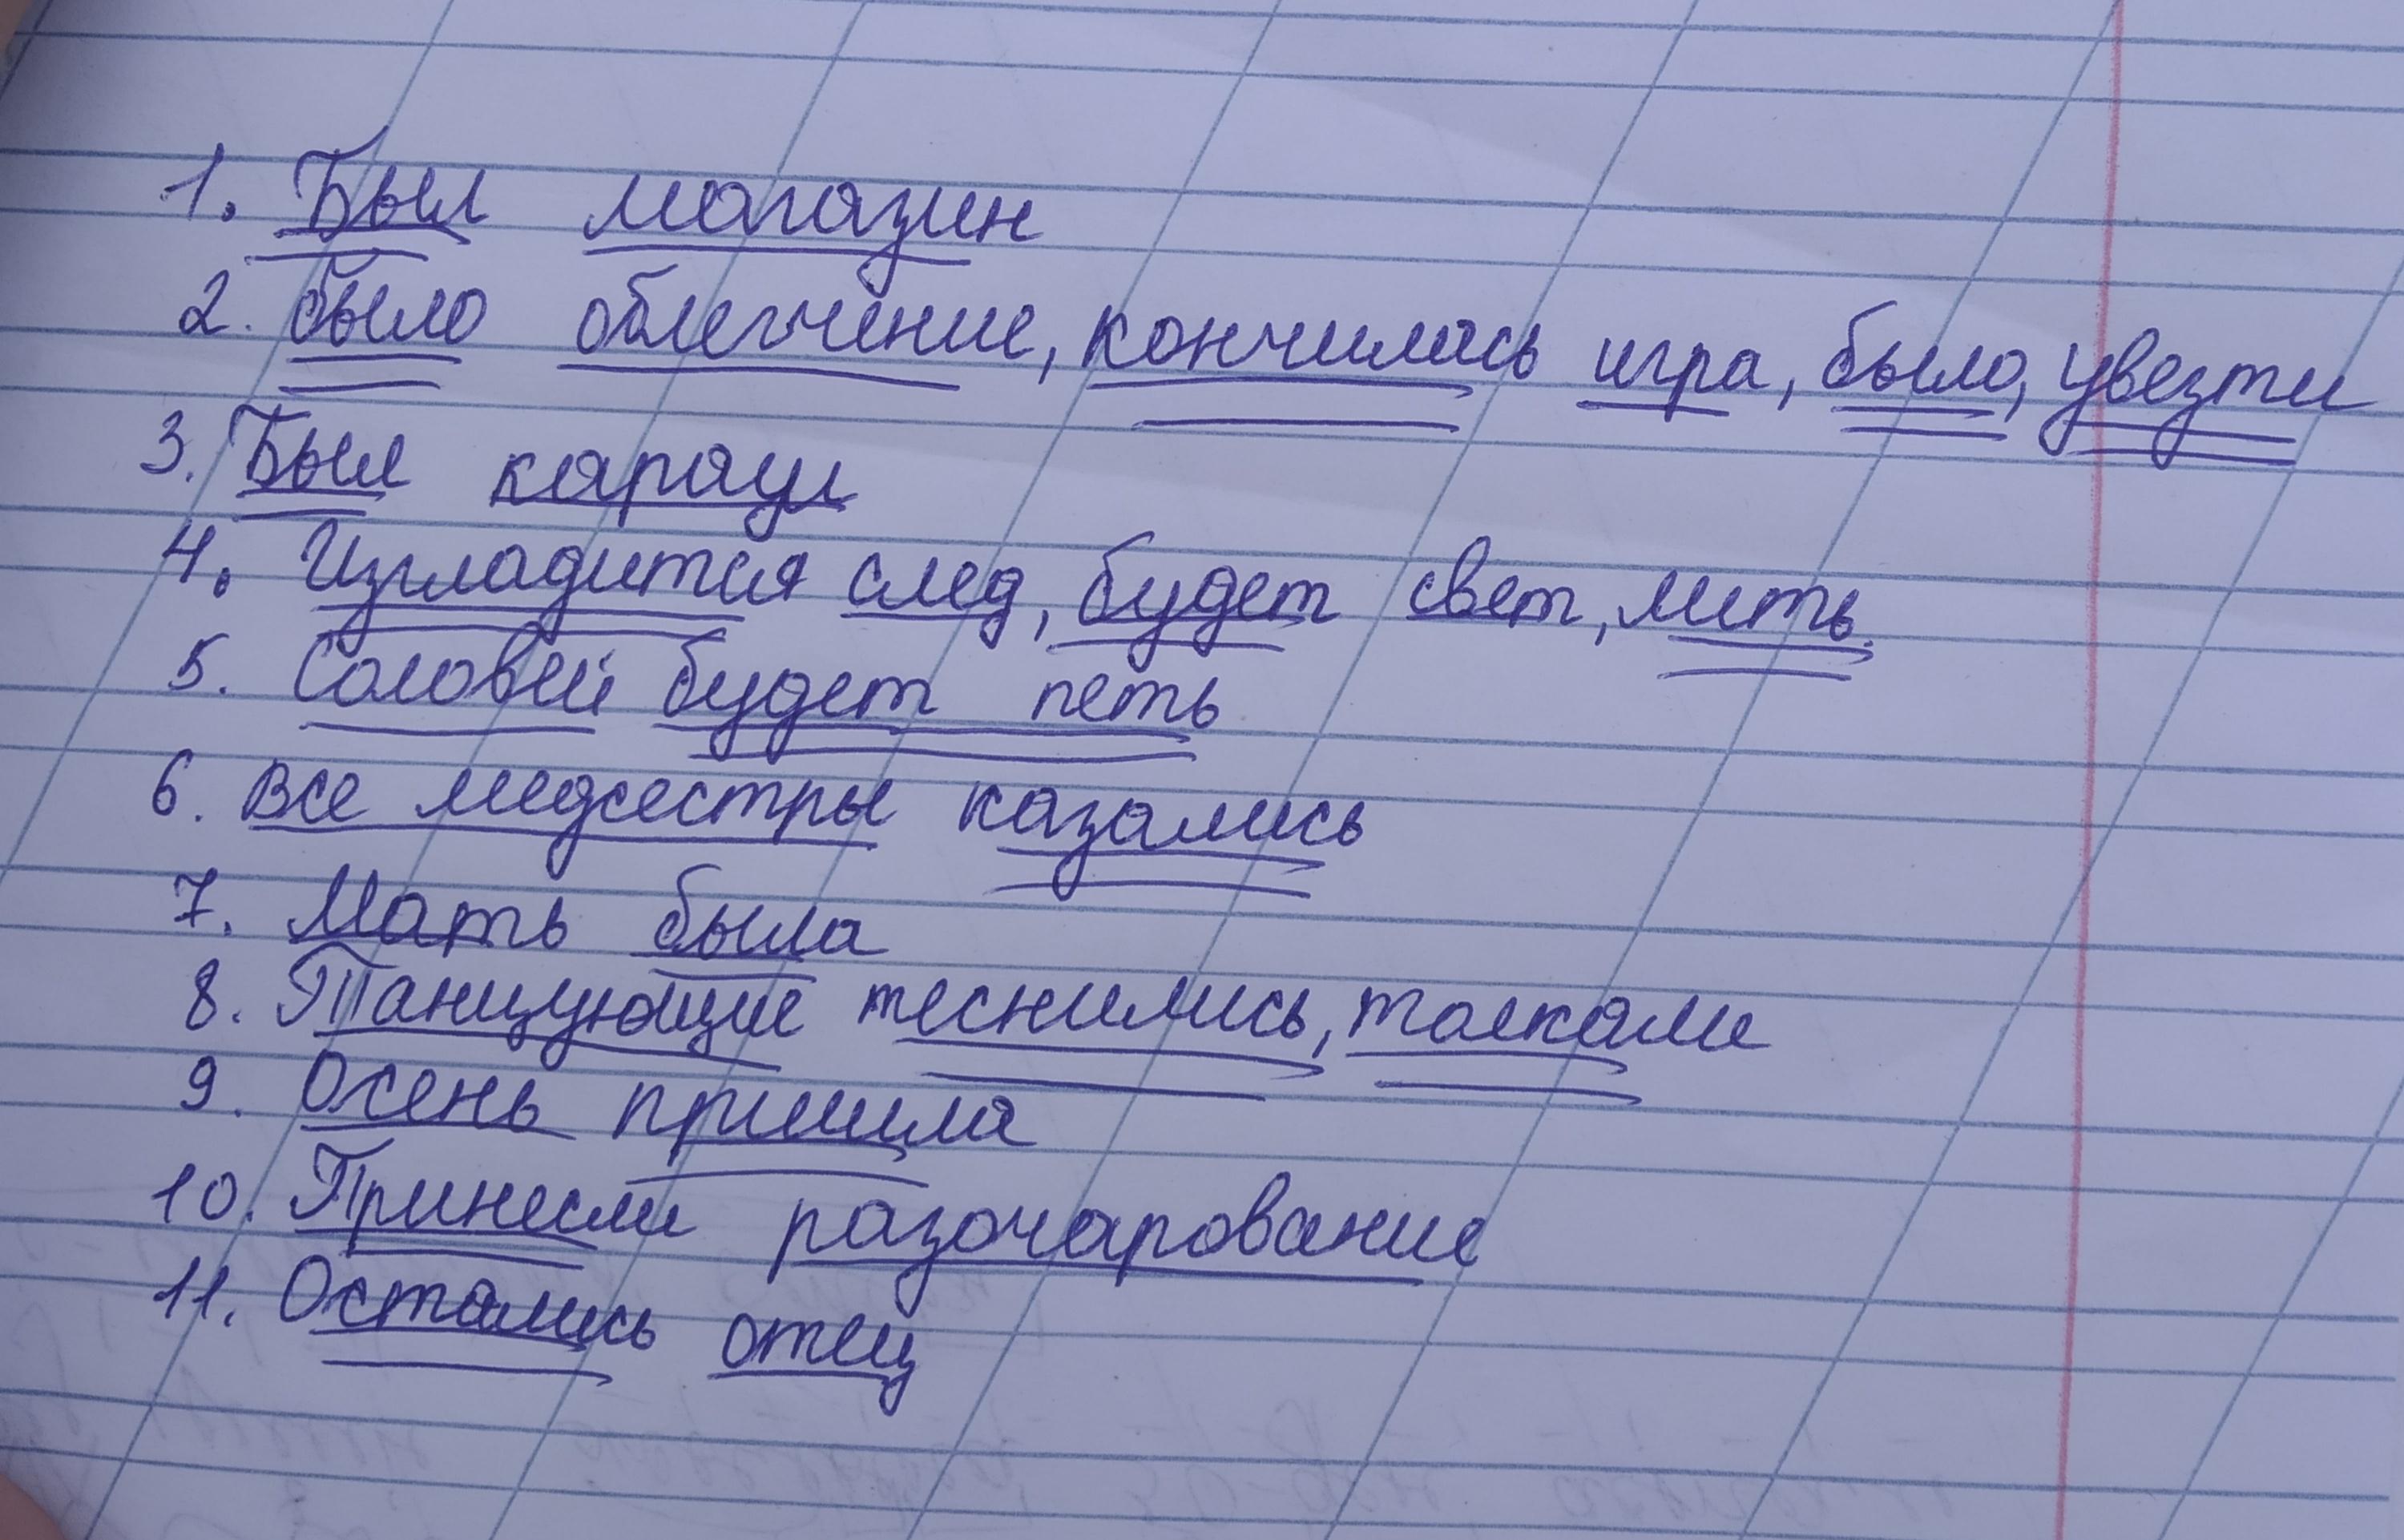 1. Был магазин
2. было облегчение, кончилась игра, было, увезти
3. Был караул
4. Изгладится след, будет свет, лить.
5. Соловей будет петь
6. все медсестры казались
7. Мать была
8. Танцующие теснились, толкали
9. Осень пришла
10. Принесли разочарование
11. Остались отец